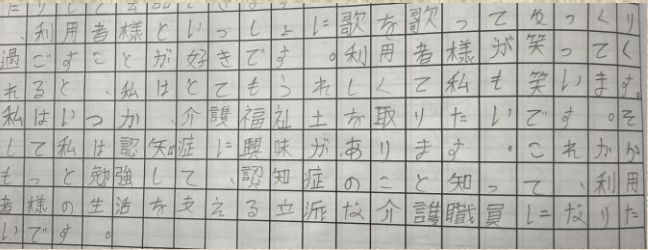 たりして
、利用者様といっしょに歌を歌ってゆっくり
過ごすことが好きです。利用者様が笑ってく
れると、私はとてもうれしくて私も笑います。
私はいつか、介護福祉士を取りたいです。そ
して私は認知症に興味があります。これから
もっと勉強して、認知症のこと知って、利用
者様の生活を支える立派な介護職員になりた
いです。